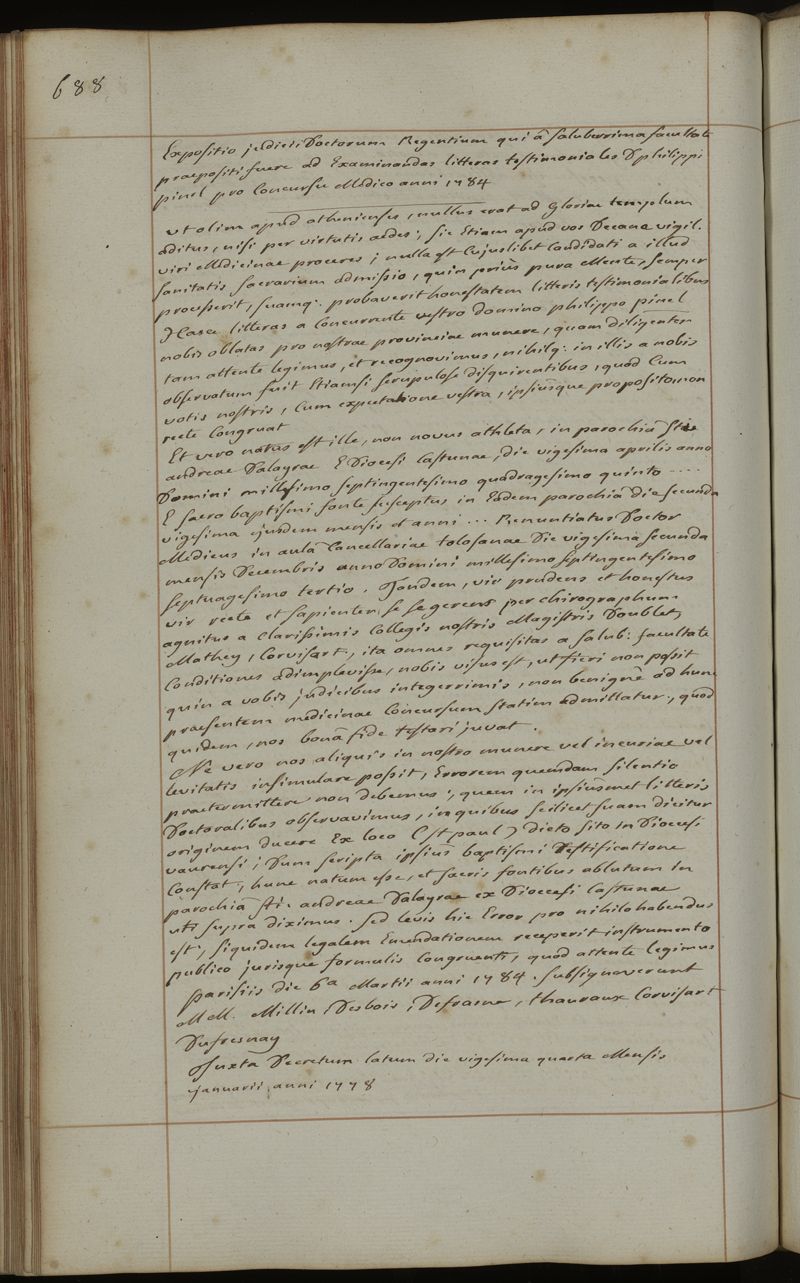 688
Expositio judicii Doctorum Regentium qui â saluberrima facultate
praepositi fuere ad Examinandas litteras testimoniales D philippi
pinel pro Concursu Medico anni 1784
ut olim apud athenienses, nullus erat ad Gloriae templum
aditus, nisi per virtutis aedes; sic Etiam apud vos Decane vigil.
viri Medicinae proceres; nulla est Cujuslibet Candidati a illud
sanitatis sacrarium admissio, quin priùs pura Mente, semper
processerit, suamq: probaverit honestatem litteris testimonialibus
Hasce litteras a Concurrente vestro domino philippo pinel
nobis oblatas pro nostrae provinciae munere, quam diligenter
tam attente legimus, et recognovimus, nihilq: in illis a nobis
observatum fuit Etiamsi scrupulose disquirentibus, quod Cum
votis nostris, Cum expectatione vestra, ipsiusque proposito, non
recte Congruat
Et vero natus est ille, non novus athleta, in parochiâ Sti
andreae Dalagrae E Diocesi Castunae, die vigesima aprilis anno
Domini millesimo septingentesimo quadragesimo quinto ....
E sacro baptismi fonte susceptus in Eadem parochiâ die secunda
vigesima ejusdem mensis et anni ... Renuntiatus Doctor
Medicus in aulâ Cancellariae tolosanae Die vigesima secunda
mensis Decembris anno Domini millesimo septingentesimo
septuagesimo tertio. Tandem, vir prudens et honestus
vir recte et sapienter se se gerens per chirographum
agnitus a Clarissimis Collegis nostris Magistris Doublet,
Mathey, Corvisart, ita omnes requisitas a salub: facultate
Conditiones adimplevisse, nobis visus est, ut fieri non possit
quin a vobis judicibus integerrimis, non benignè ad hunc
praesentem medicinae Concursum statim admittatur, quod
quidem, nos bonâ fide testari juvat.
Ne vero nos aliquis in nostro munere vel incuriae vel
levitatis insimulare possit, Errorem quemdam silentio
praetermittere non debemus, quem in ipsiusmet litteris
Doctoralibus observavimus, in quibus scilicet suam dicitur
originem ducere Ex loco (St paul) dicto sito in Diocesi
vaurensi; Dum scripta ipsius baptismi Testificatione
Constat, hunc natum esse, et sacris fontibus ablutum in
parochiâ sti. andreae Dalagrae ex Dioecesi Castunae
uti supra diximus. Sed levis hic Error pro nihilo habendus
est, siquidem legalem Emendationem receperit instrumento
publico jurisque formulis Congruenti, quod attente legimus
parisiis die 6a Martii anni 1784. subsignaverunt
MM. Millin, Desbois, Defrasne, thauraux Corvisart
Dufresnay
Juxta Decretum latum die vigesima quarta Mensis
januarii anni 1778